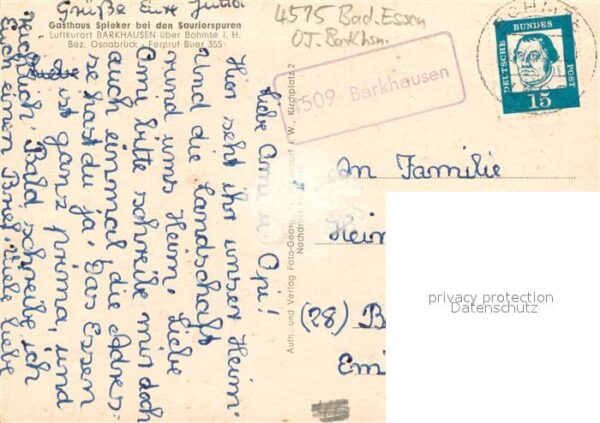 Grüße Eure Jutta
Gasthaus Spieker bei den Saurierspuren
Luftkurort BARKHAUSEN über Bohmte i. H.
Bez. Osnabrück - Fernruf Buer 355
4515 Bad. Essen
OT. Barkhsn.
4509 Barkhausen
DEUTSCHE BUNDES POST
15
Liebe Omi u. Opi!
Hier seht ihr unser Heim
und die Landschaft
rund ums Heim. Liebe
Omi bitte schreibe mir doch
auch einmal die Adres-
se hast du ja. Das Essen
ist ganz prima, und
reichlich. Bald schreibe ich
Euch einen Brief. Viele liebe
Aufn. und Verlag Foto-Georg
Kirchplatz 2
Nachdruck
An Familie
Heim
(28) B
Emi
privacy protection
Datenschutz